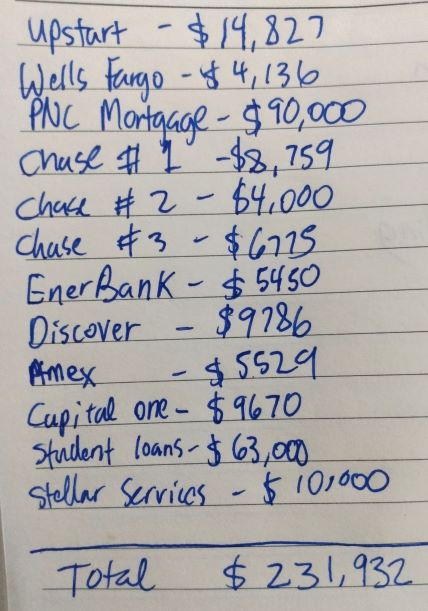 Upstart - $14,827
Wells Fargo - $4,136
PNC Mortgage - $90,000
Chase # 1 - $8,759
Chase # 2 - $4,000
Chase # 3 - $6775
EnerBank - $5450
Discover - $9786
Amex - $5529
Capital one - $9670
Student loans - $63,000
Stellar Services - $10,000
Total $231,932